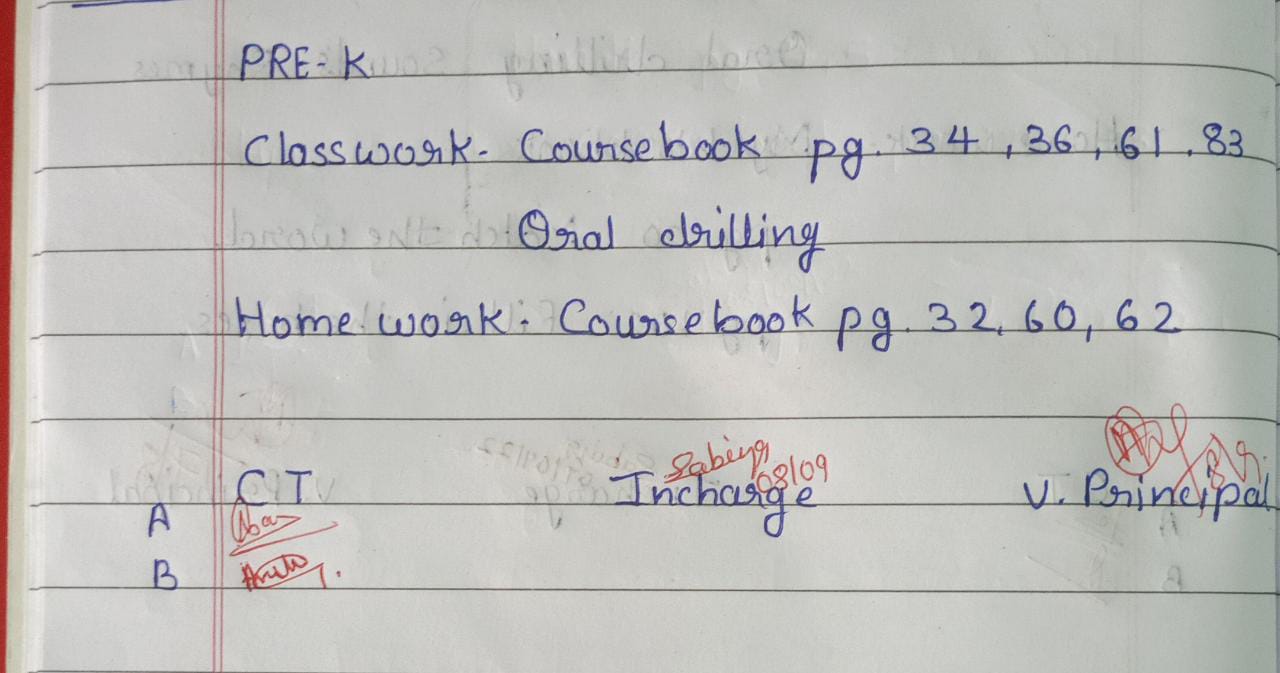 PRE-K
Classwork- Coursebook pg. 34, 36, 61, 83
Oral drilling
Home work- Coursebook pg. 32, 60, 62
Sabiya
08/09
C T Incharge V. Principal
A
B